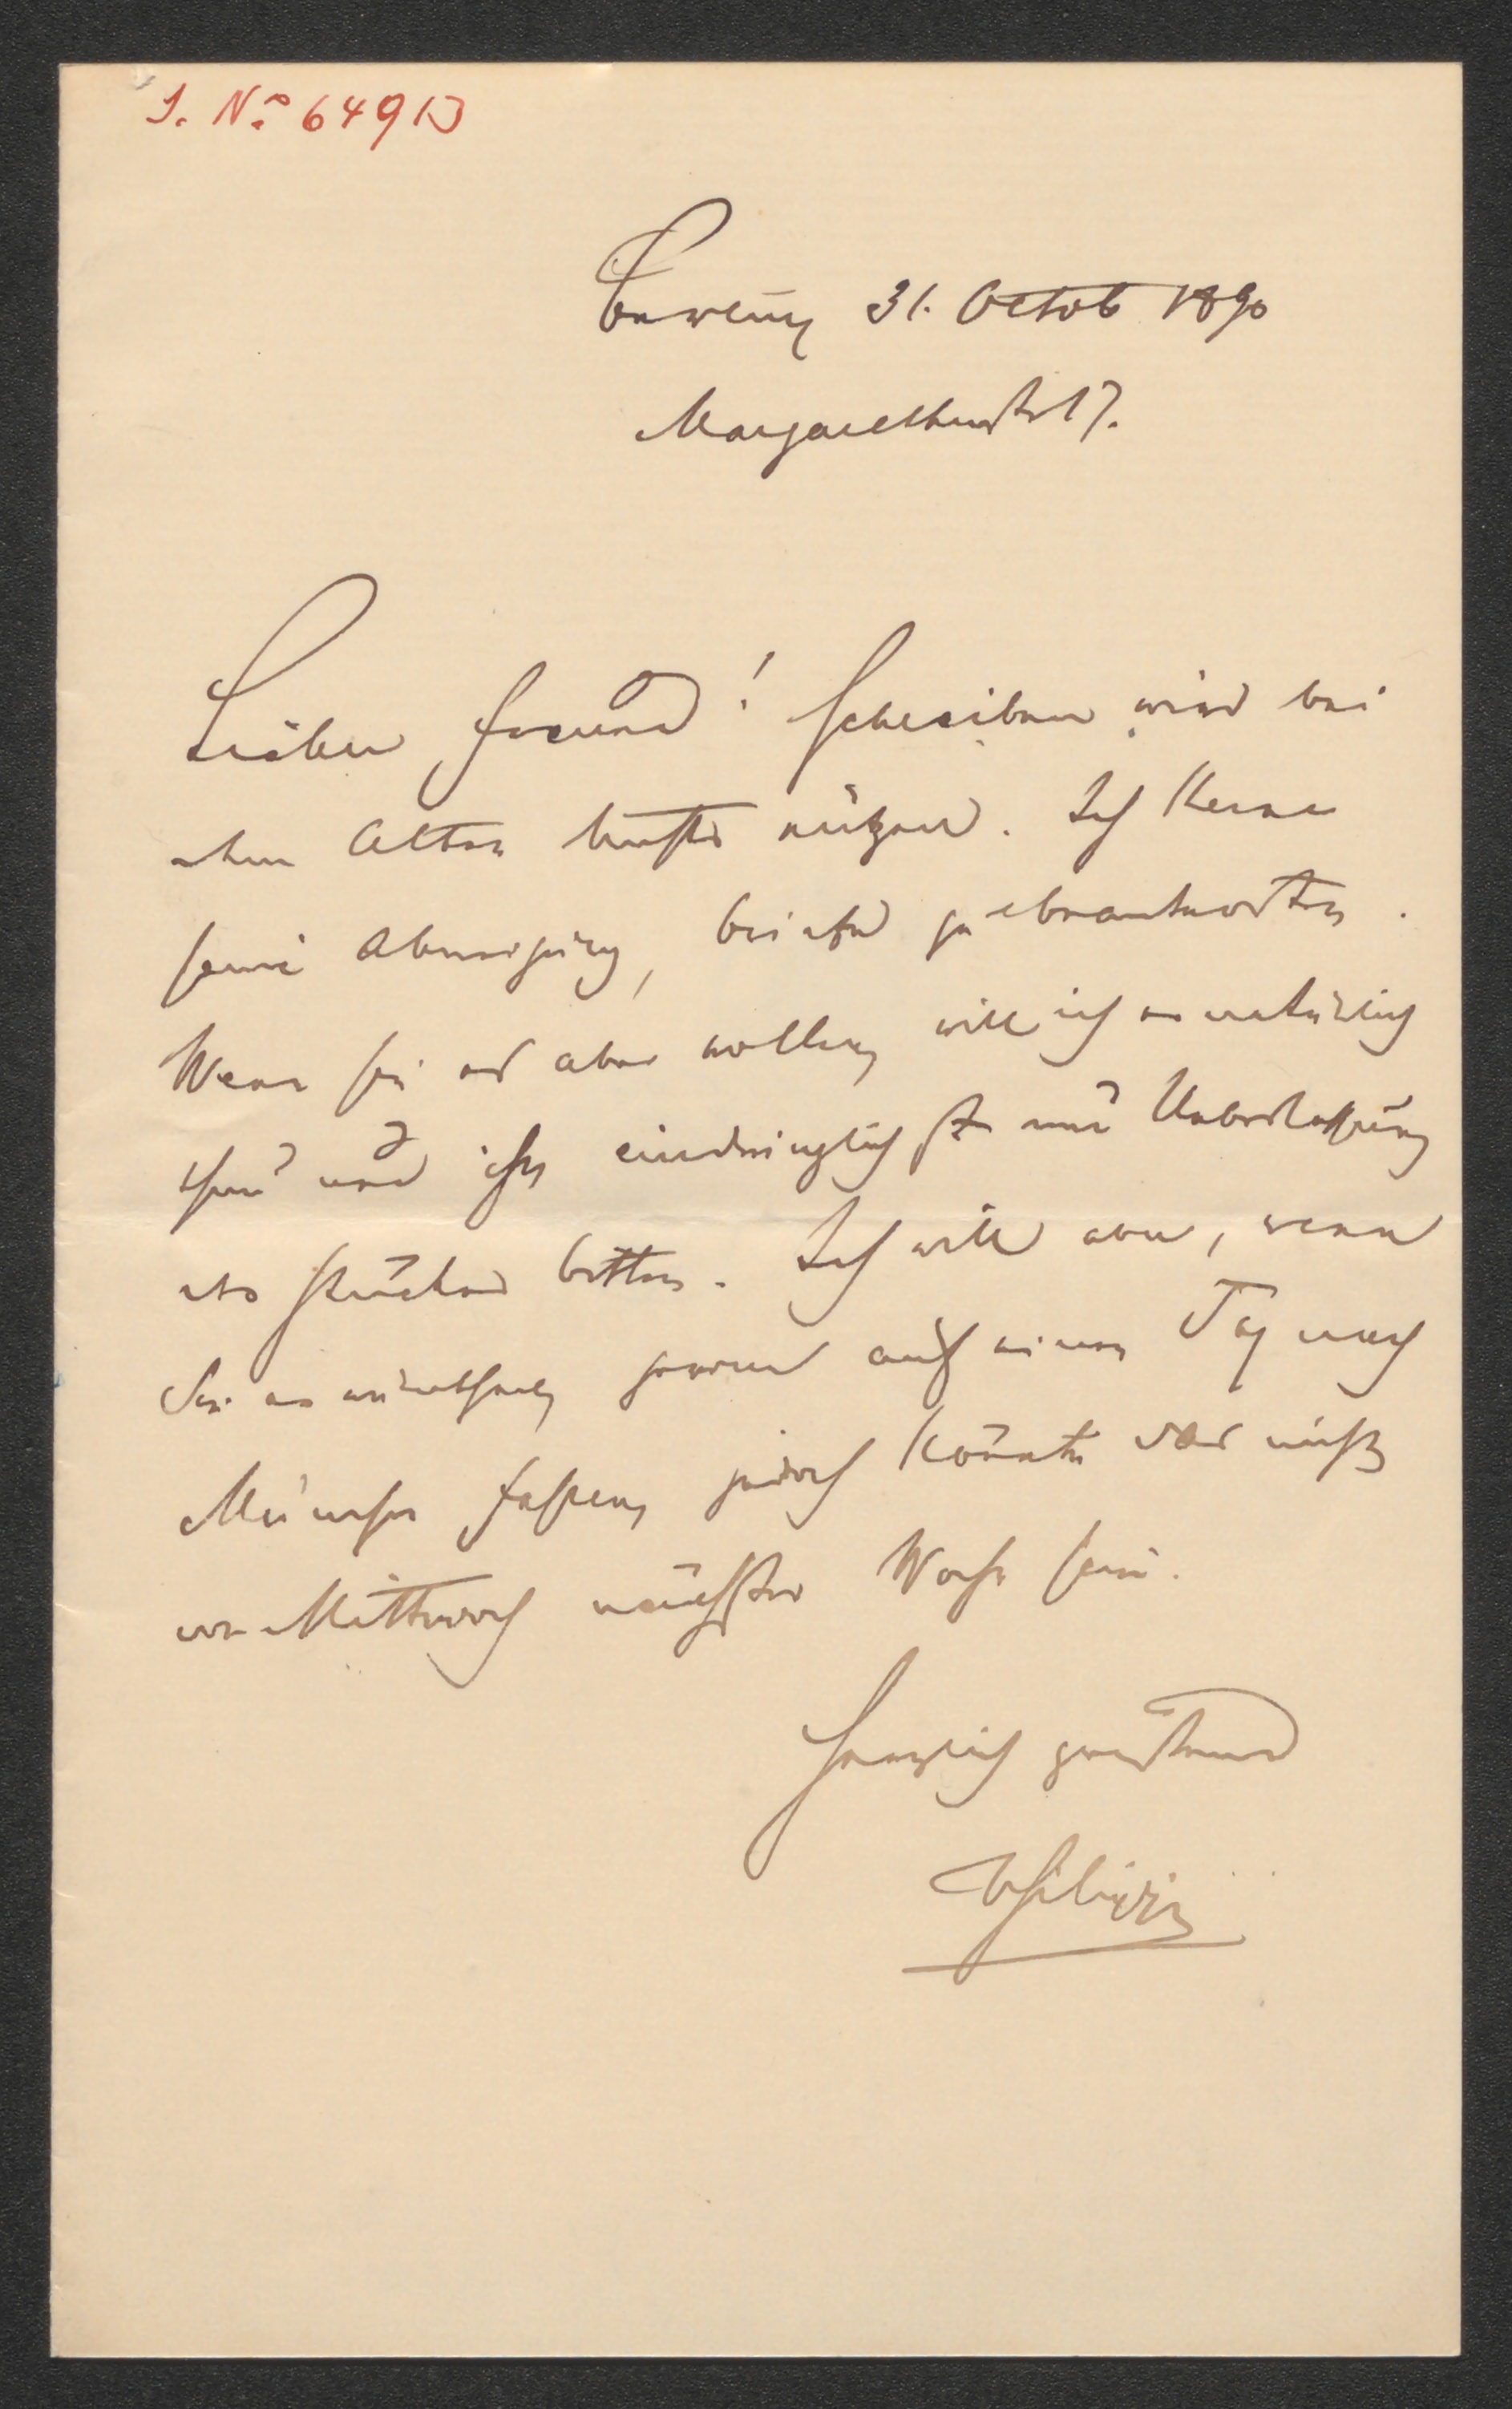 J. N° 64913
31. Octob 1890
Margarethenstr 17.
Lieber Freund! Schreiben wird bei
dem Alten nichts nützen. Ich kenne
seine Abneigung, Briefe zu beantworten.
Wenn Sie es aber wollen, will ich es natürlich
thun und ihn eindringlichst um Ueberlassung
des Stückes bitten. Ich will aber, wenn
Sie es wünschen, gerne auf einen Tag nach
München fahren, jedoch könnte das nicht
vor Mittwoch nächster Woche sein.
Herzlich grüßend